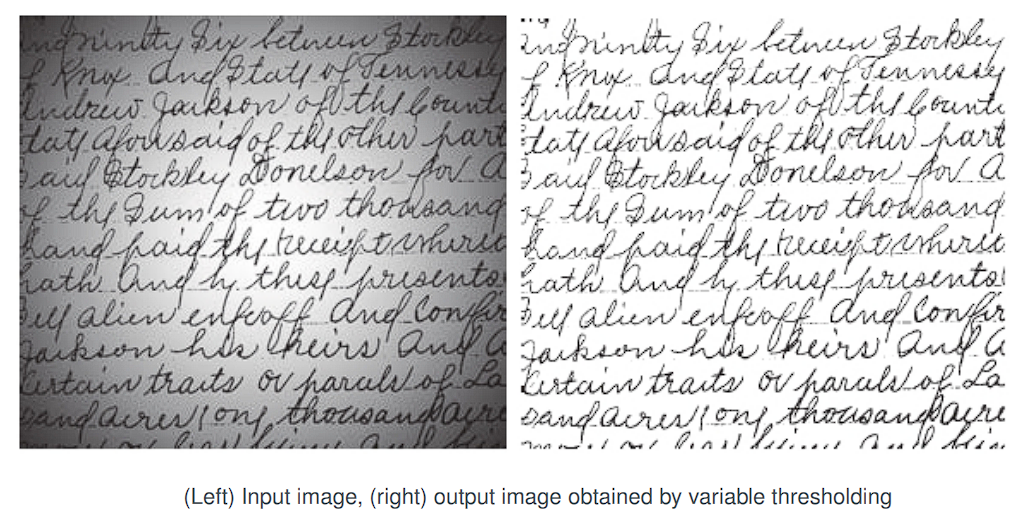 ind ninity Six between Stockley
of Knox. And State of Tennessey
Andrew Jackson of the County
tate aforesaid of the other part
said Stockley Donelson for A
of the Sum of two thousand
hand paid the receipt wherea
hath And by these presents
self alien enfeoff And Confir
Jackson his heirs And A
Certain traits or parcels of La
sand acres one thousand acre
ind ninity Six between Stockley
of Knox. And State of Tennessey
Andrew Jackson of the County
tate aforesaid of the other part
said Stockley Donelson for A
of the Sum of two thousand
hand paid the receipt wherea
hath And by these presents
self alien enfeoff And Confir
Jackson his heirs And A
Certain traits or parcels of La
sand acres one thousand acre
(Left) Input image, (right) output image obtained by variable thresholding